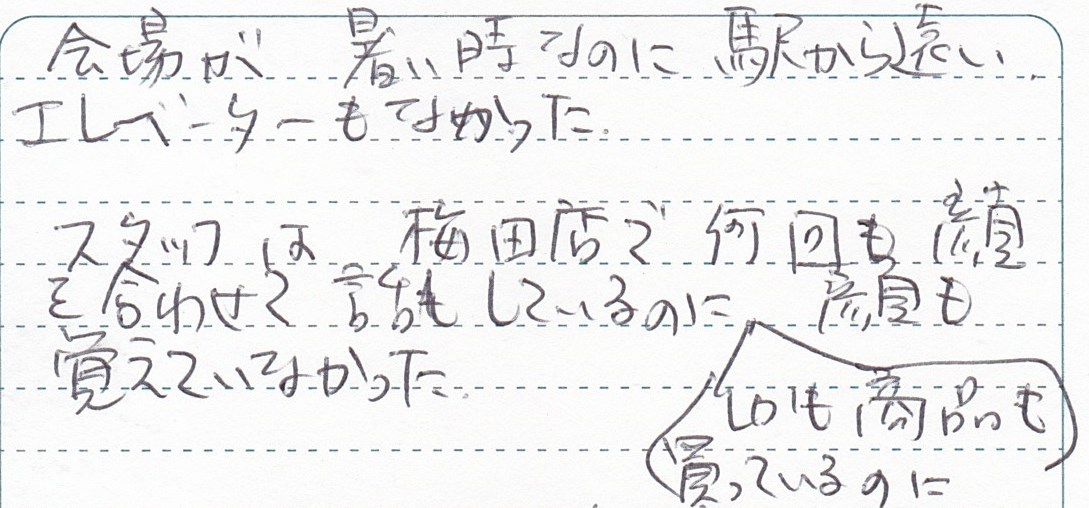 会場が 暑い時なのに 駅から遠い.
エレベーターもなかった.
スタッフは 梅田店で 何回も 顔
を合わせて 話もしているのに 顔も
覚えていなかった.
しかも 商品も
買っているのに